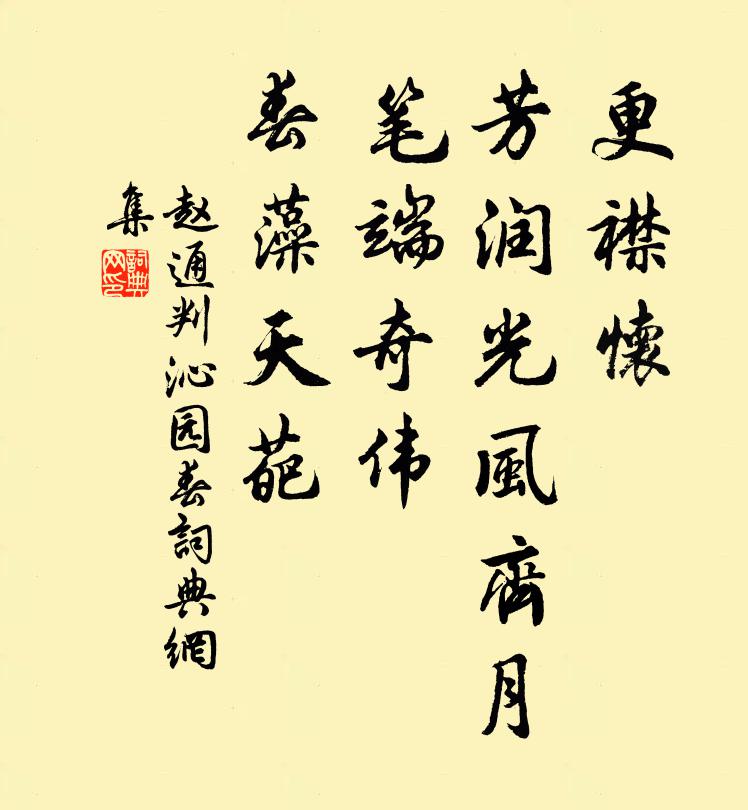 更襟懷
芳润光風齊月
笔端奇伟
春藻天葩
赵通判沁园春詞典網
集
詞典网印